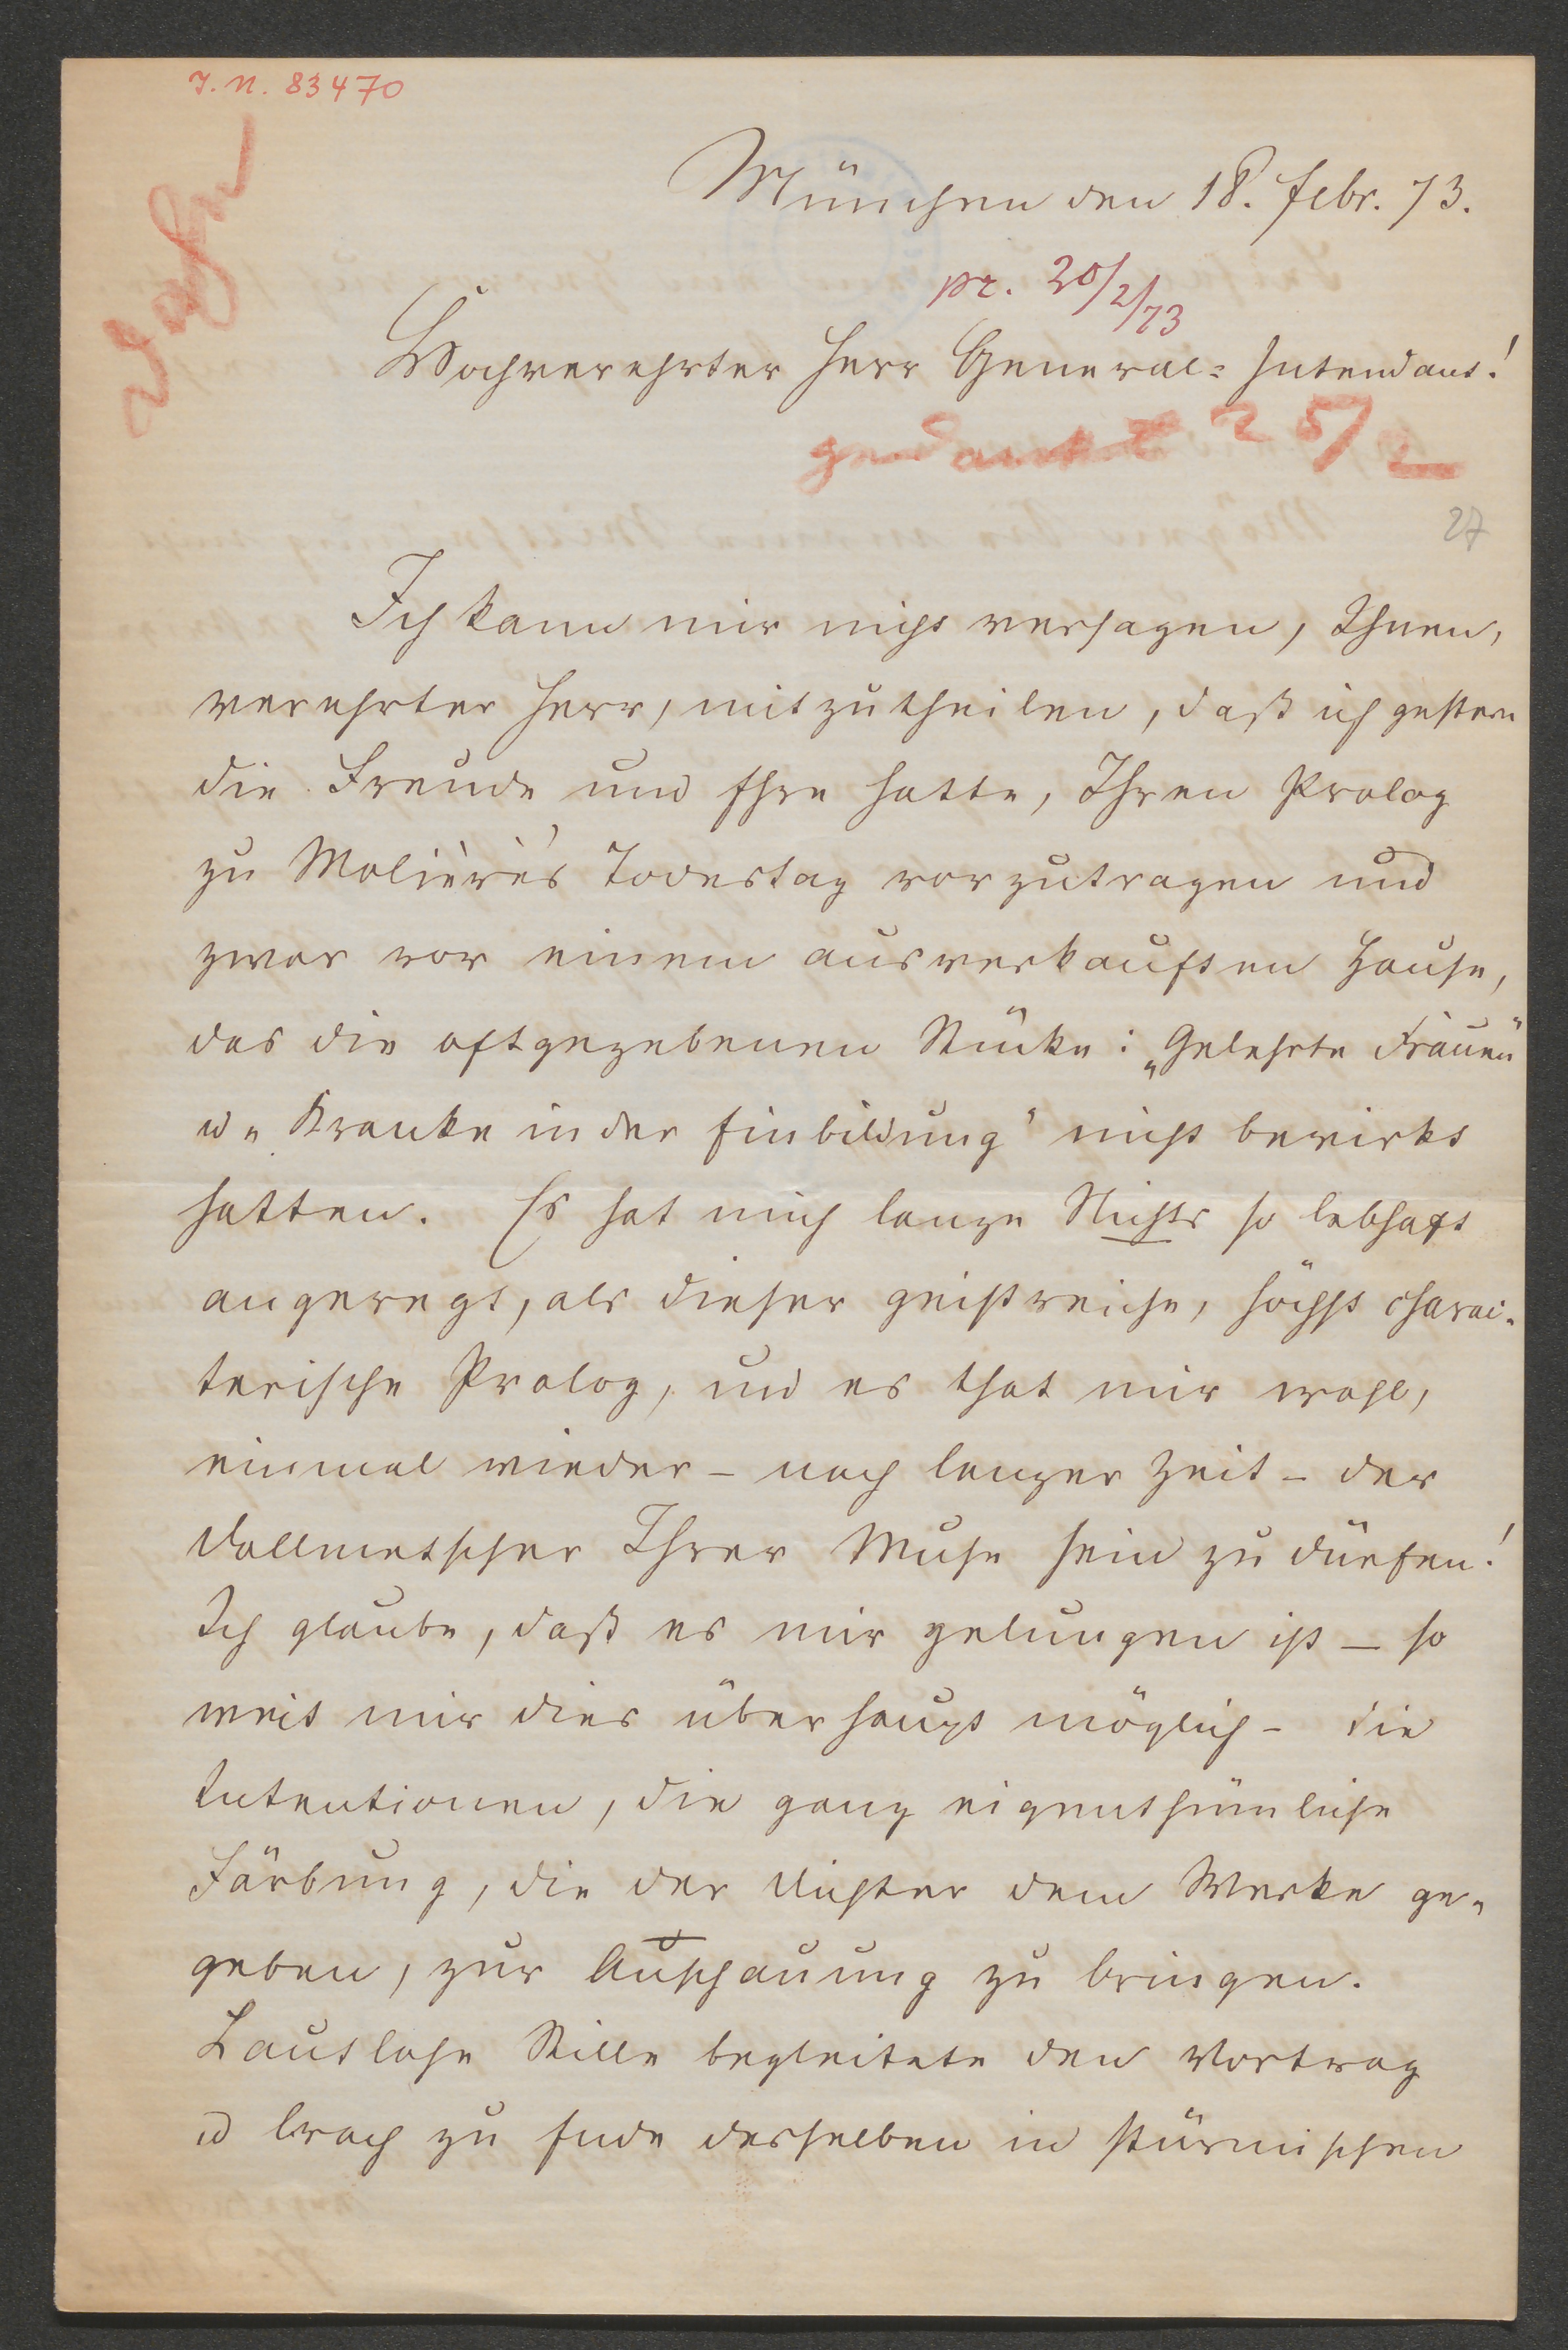 J. N. 83470
Dahn
München den 18. Febr. 73.
pr. 20/2/73
Hochverehrter Herr General-Intendant!
gedankt 25/2
27
Ich kann mir nicht versagen, Ihnen,
verehrter Herr, mitzutheilen, daß ich gestern
die Freude und Ehre hatte, Ihren Prolog
zu Molière's Todestag vorzutragen und
zwar vor einem ausverkauften Hause,
das die oftgegebenen Stücke: „Gelehrte Frauen"
u „Kranke in der Einbildung" nicht bewirkt
hatten. Es hat mich lange Nichts so lebhaft
angeregt, als dieser geistreiche, höchst charac-
terische Prolog, und es that mir wohl,
einmal wieder – nach langer Zeit – der
Dollmetscher Ihrer Muse sein zu dürfen!
Ich glaube, daß es mir gelungen ist – so
weit mir dies überhaupt möglich – die
Intentionen, die ganz eigenthümliche
Färbung, die der Dichter dem Werke ge-
geben, zur Anschauung zu bringen.
Lautlose Stille begleitete den Vortrag
u brach zu Ende desselben in stürmischen